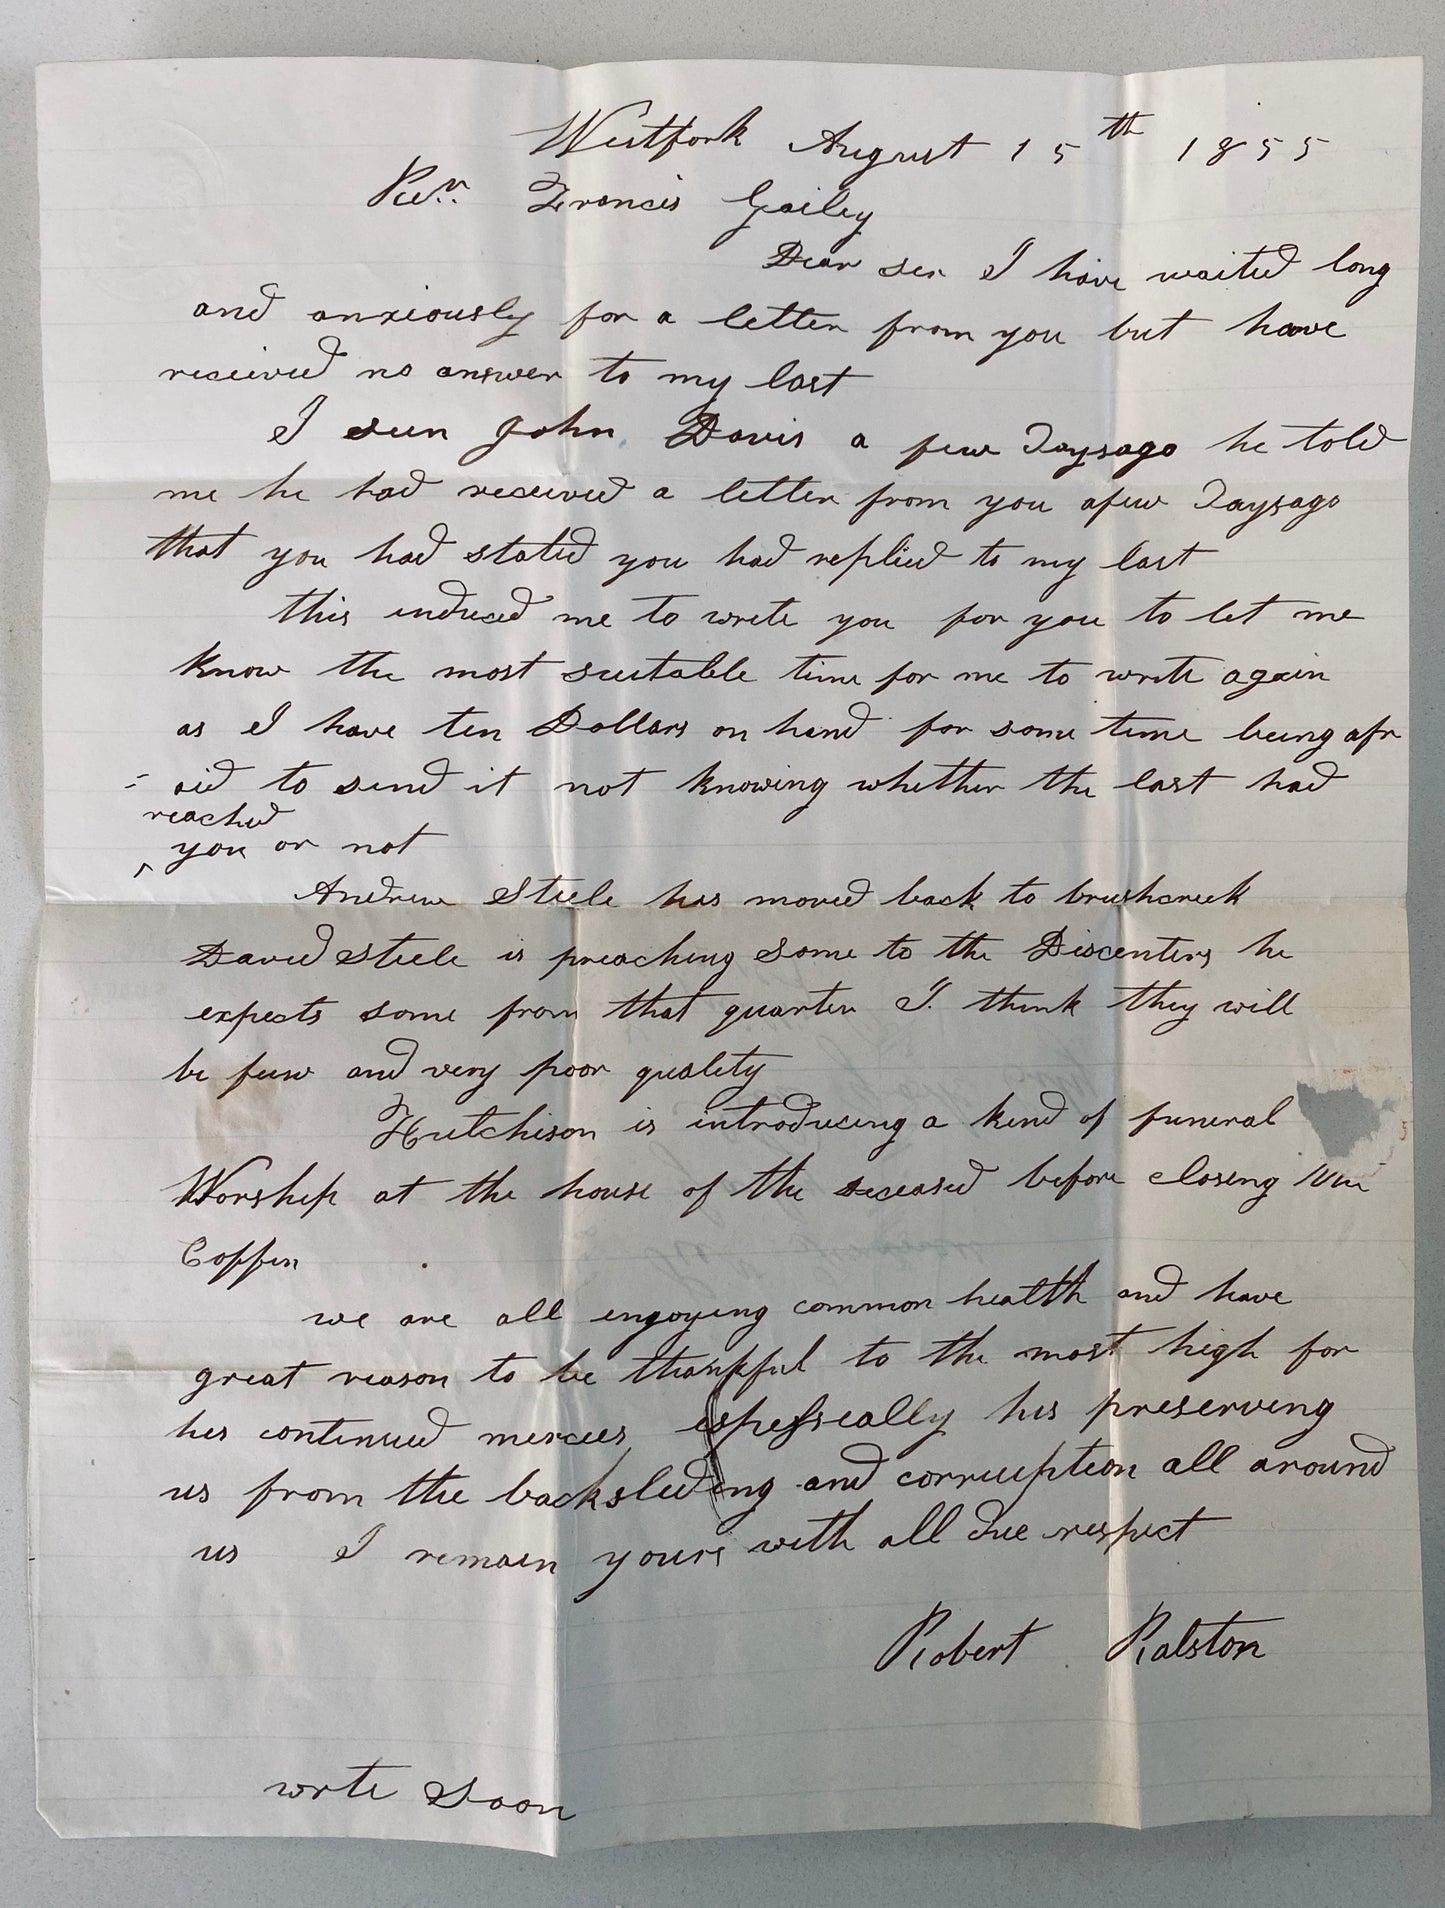 Westfork August 15th 1855
Revr. Francis Gailey
Dear ser I have waited long
and anxiously for a letter from you but have
received no answer to my last
I seen John Davis a few Daysago he told
me he had received a letter from you afew Daysago
that you had stated you had replied to my last
this induced me to write you for you to let me
know the most suitable time for me to write again
as I have ten Dollars on hand for some time being afr
= aid to send it not knowing whether the last had
reached
^ you or not
Andrew Steele has moved back to brushcreek
David Steele is preaching some to the Discenters he
expects some from that quarter I think they will
be few and very poor quality
Hutchison is introducing a kind of funeral
Worship at the house of the deceased before closing the
Coffin
we are all engoying common health and have
great reason to be thankful to the most high for
his continued mercies espesseally his preserving
us from the backsliding and corruption all around
us I remain yours with all due respect
Robert Ralston
wrte Soon